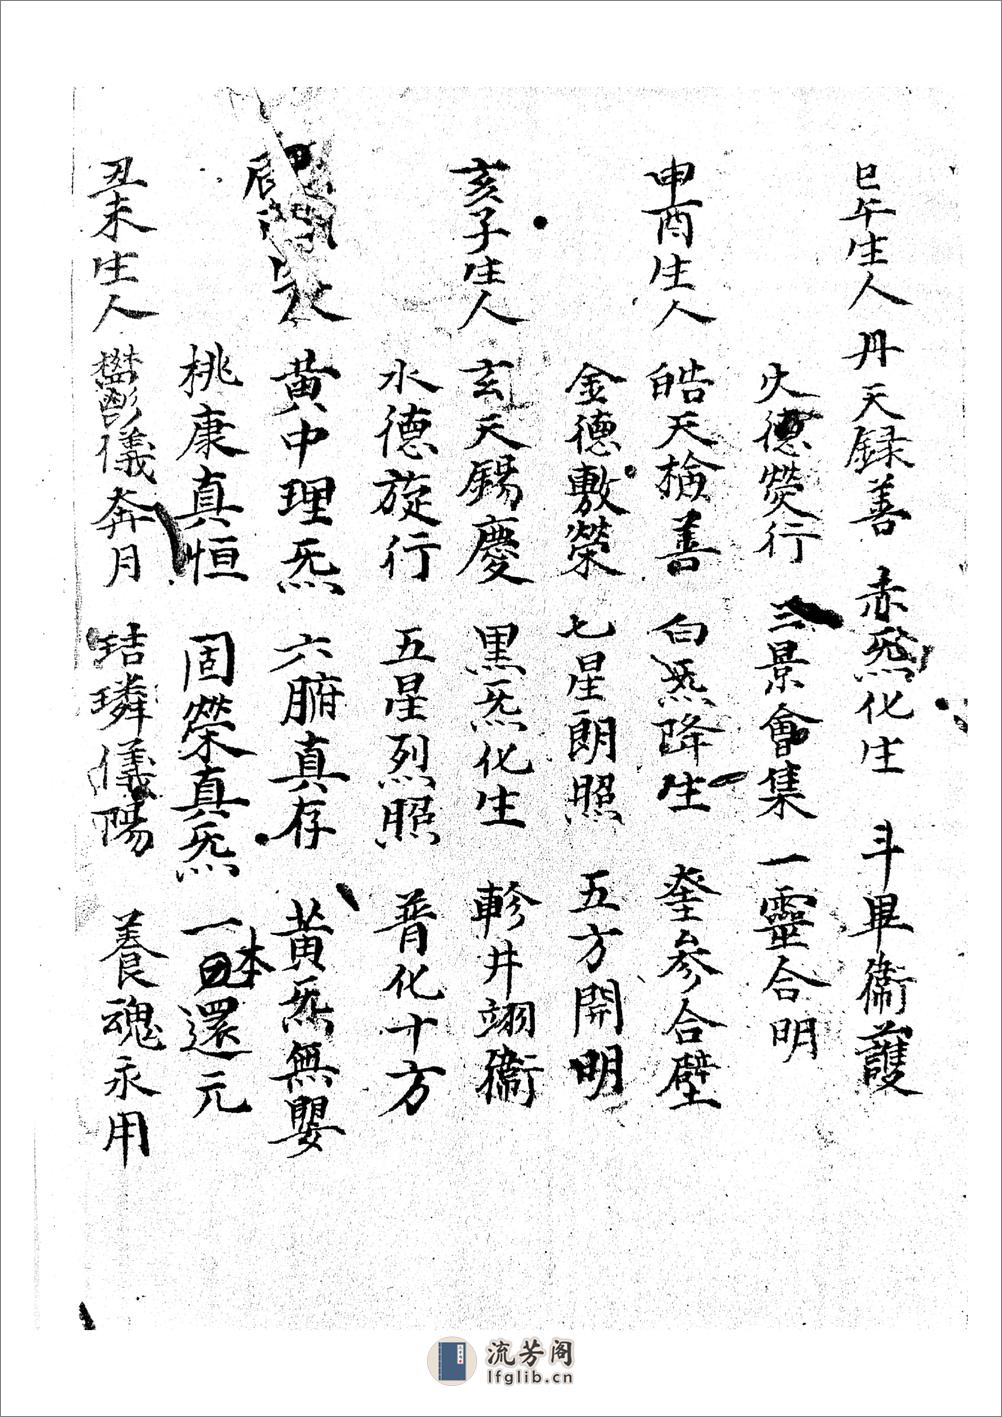 巳午生人 丹天録善 赤炁化生 斗畢衞護
火德熒行 三景會集 一靈合明
申酉生人 皓天檢善 白炁降生 奎参合璧
金德敷榮 七星朗照 五方開明
亥子生人 玄天錫慶 黒炁化生 軫井翊衞
水德旋行 五星烈照 普化十方
辰 黄中理炁 六腑真存 黃炁無嬰
桃康真恒 固榮真炁 一本還元
丑未生人 欝儀奔月 結璘儀陽 養魂永用
流芳阁
lfglib.cn